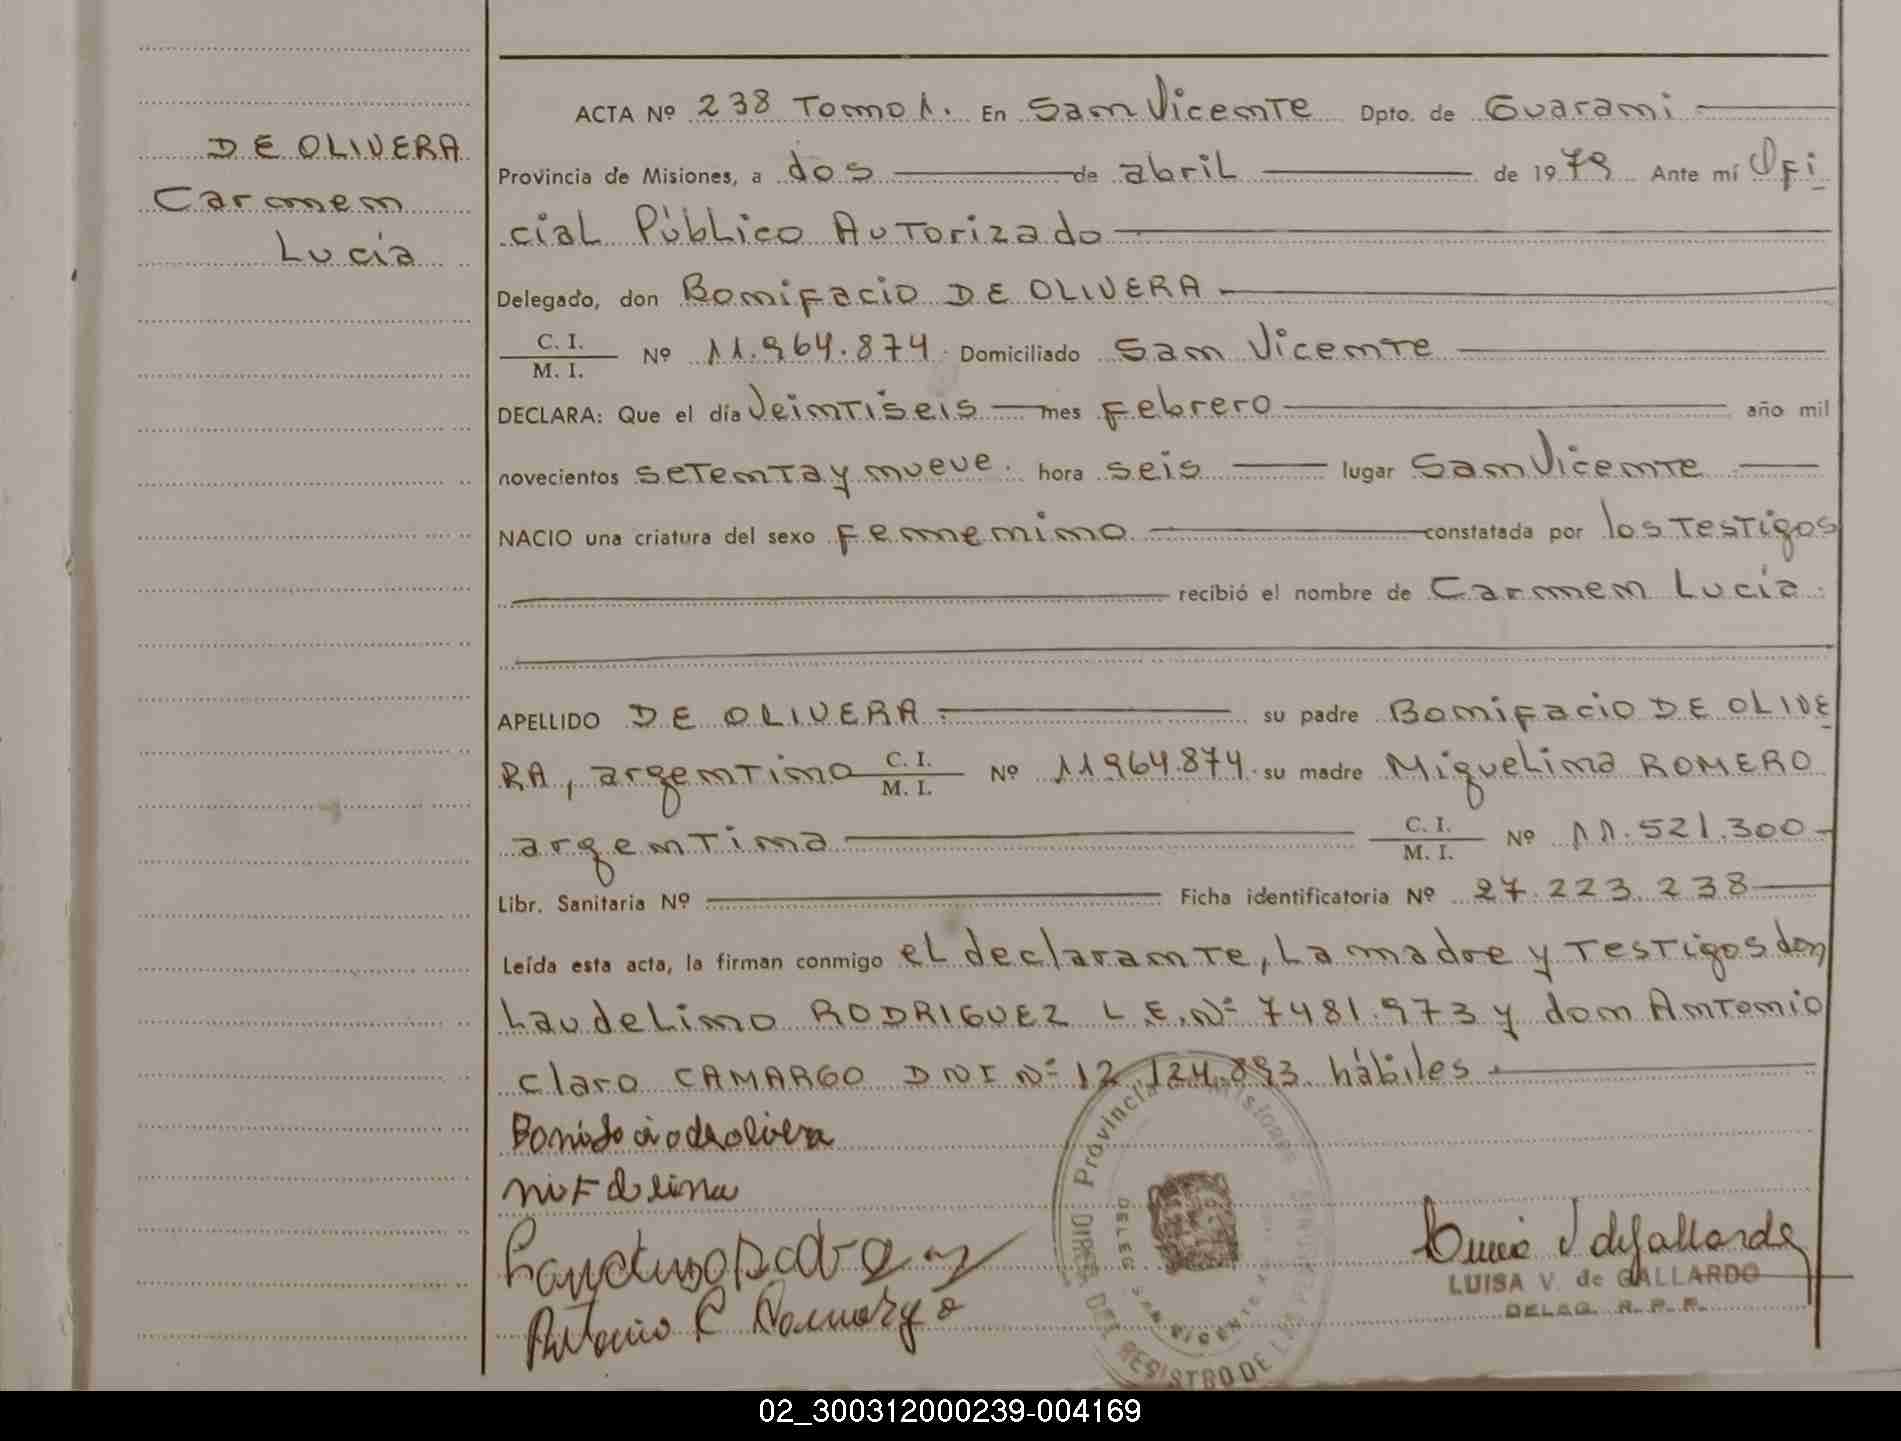 DE OLIVERA
Carmen
Lucía
ACTA Nº 238 Tomo 1. En San Vicente Dpto. de Guaraní
Provincia de Misiones, a dos de abril de 1979 Ante mí Ofi
cial Público Autorizado
Delegado, don Bonifacio DE OLIVERA
C. I.
M. I. Nº 11.964.874. Domiciliado San Vicente
DECLARA: Que el día Veintiseis mes Febrero año mil
novecientos setenta y nueve. hora seis lugar San Vicente
NACIO una criatura del sexo Femenino constatada por los Testigos
recibió el nombre de Carmen Lucía.
APELLIDO DE OLIVERA. su padre Bonifacio DE OLIVE
RA, argentino C. I. M. I. Nº 11964.874. su madre Miguelina ROMERO
argentina C. I. M. I. Nº 11.521.300
Libr. Sanitaria Nº Ficha identificatoria Nº 27.223.238
Leída esta acta, la firman conmigo el declarante, La madre y Testigos don
Laudelino RODRIGUEZ L.E.Nº 7481.973 y don Antonio
claro CAMARGO DNI Nº 12.124.893. hábiles.
Provincia Misiones
DELEG. SAN VICENTE
DIREC. DEL REGISTRO DE LAS PERSONAS
LUISA V. de GALLARDO
DELEG. R. P. P.
02_300312000239-004169